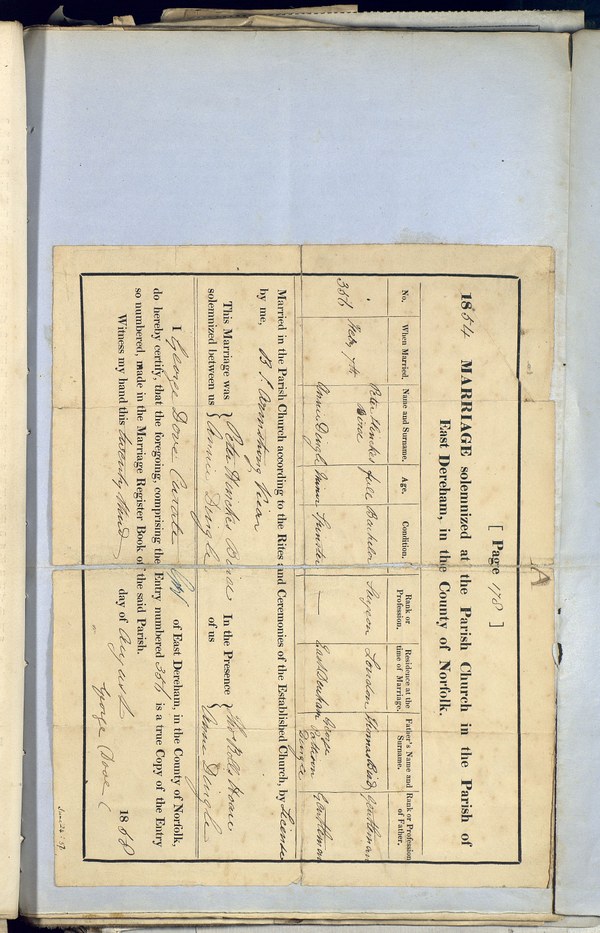 A
[ Page 178 ]
1854 MARRIAGE solemnized at the Parish Church in the Parish of
East Dereham, in the County of Norfolk.
No. When Married. Name and Surname. Age. Condition. Rank or Profession. Residence at the time of Marriage. Father's Name and Surname. Rank or Profession of Father.
356 Feby 7th Peter Hinckes Bird full Bachelor Surgeon London Thomas Bird Gentleman
Annie Dingle Minor Spinster — East Dereham George Dingle Gentleman
Married in the Parish Church according to the Rites and Ceremonies of the Established Church, by License
by me, B. J. Armstrong Vicar
This Marriage was solemnized between us { Peter Hinckes Bird In the Presence of us {
Annie Dingle Anna Dingle
I George Dove Curate of East Dereham, in the County of Norfolk,
do hereby certify, that the foregoing, comprising the Entry numbered 356 is a true Copy of the Entry
so numbered, made in the Marriage Register Book of the said Parish.
Witness my hand this twenty third day of August 1858
George Dove